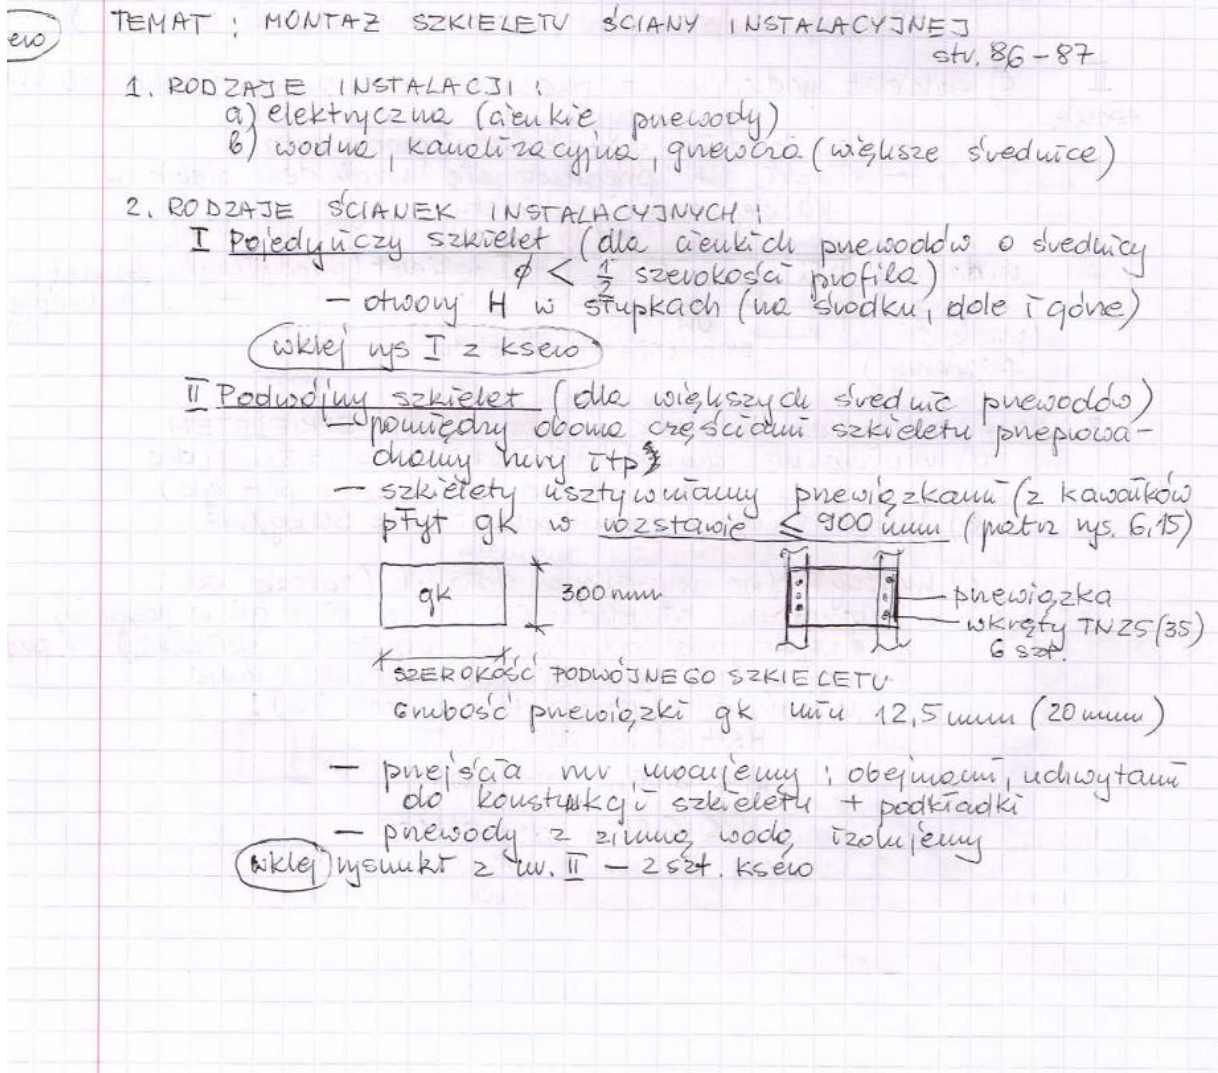 TEMAT : MONTAŻ SZKIELETU ŚCIANY INSTALACYJNEJ
str. 86-87
1. RODZAJE INSTALACJI :
a) elektryczna (cienkie przewody)
b) wodna, kanalizacyjna, grzewcza (większe średnice)
2. RODZAJE ŚCIANEK INSTALACYJNYCH :
I Pojedyńczy szkielet (dla cienkich przewodów o średnicy
ø < 1/2 szerokości profila)
— otwory H w słupkach (na środku, dole i górze)
wklej rys I z ksero
II Podwójny szkielet (dla większych średnic przewodów)
— pomiędzy oboma częściami szkieletu przeprowa-
dzamy rury itp
— szkielety usztywniamy przewiązkami (z kawałków
płyt gk w rozstawie ≤ 900 mm (patrz rys. 6,15)
gk
300 mm
przewiązka
wkręty TN25(35)
6 szt.
SZEROKOŚĆ PODWÓJNEGO SZKIELETU
Grubość przewiązki gk min 12,5 mm (20 mm)
— przejścia rur mocujemy : obejmami, uchwytami
do konstrukcji szkieletu + podkładki
— przewody z zimną wodą izolujemy
wklej rysunki z nr. II — 2 szt. ksero